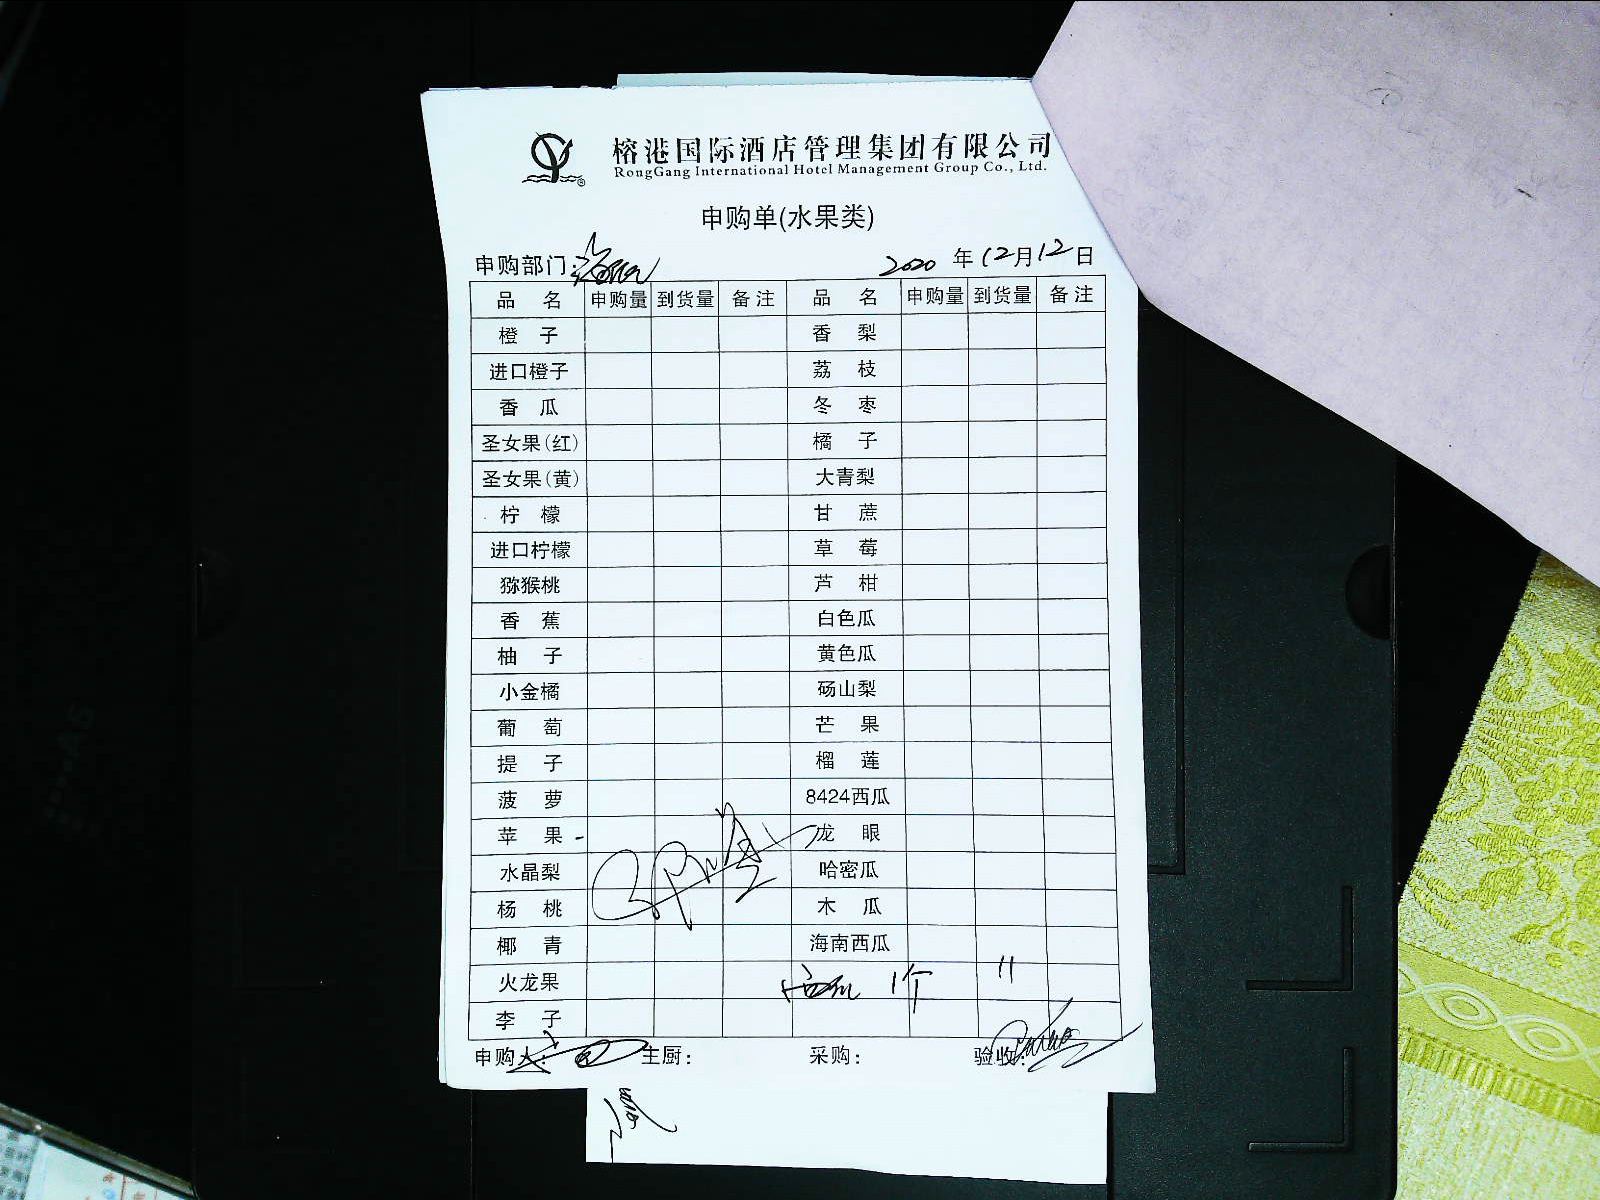 榕港国际酒店管理集团有限公司
RongGang International Hotel Management Group Co., Ltd.
申购单(水果类)
申购部门: 2020 年 12 月 12 日
品 名 申购量 到货量 备注 品 名 申购量 到货量 备注
橙 子 香 梨
进口橙子 荔 枝
香 瓜 冬 枣
圣女果(红) 橘 子
圣女果(黄) 大青梨
柠 檬 甘 蔗
进口柠檬 草 莓
猕猴桃 芦 柑
香 蕉 白色瓜
柚 子 黄色瓜
小金橘 砀山梨
葡 萄 芒 果
提 子 榴 莲
菠 萝 8424西瓜
苹 果 龙 眼
水晶梨 哈密瓜
杨 桃 木 瓜
椰 青 海南西瓜
火龙果 1个 11
李 子
申购人: 主厨: 采购: 验收: